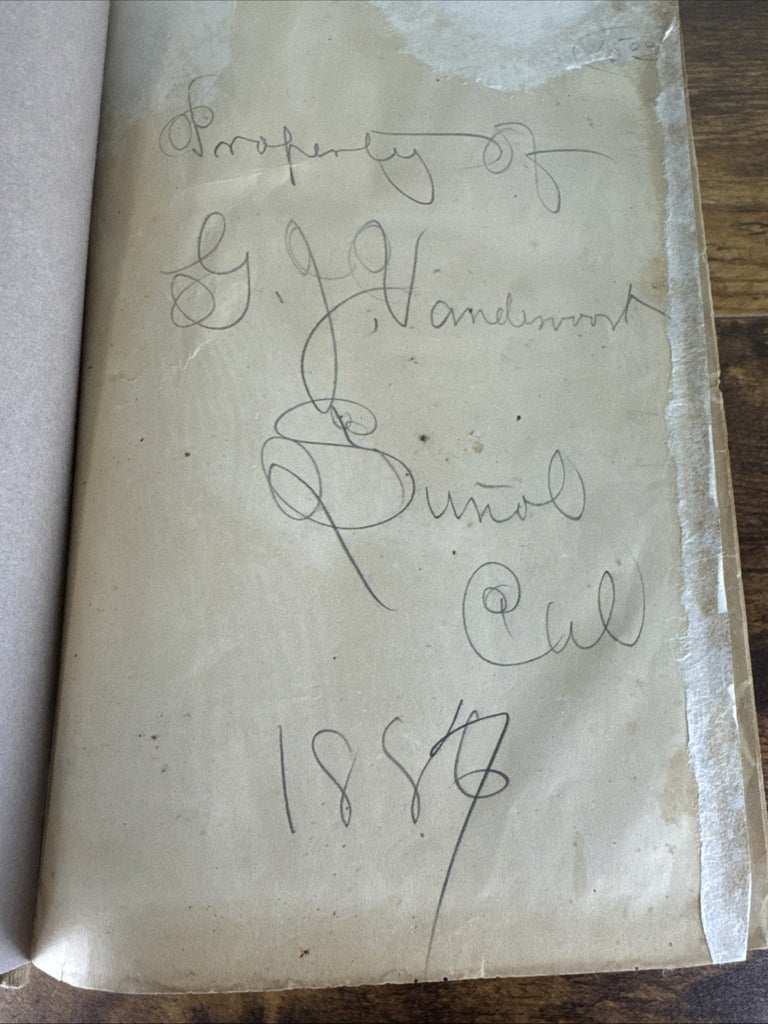 Property Of
G. J. Vandervoort
Suñol
Cal